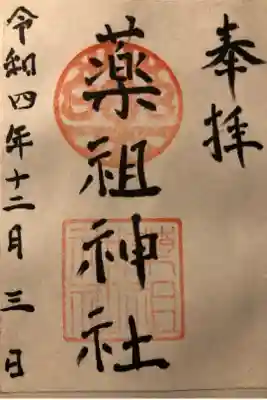 奉拝
薬祖神社
令和四年十二月三日